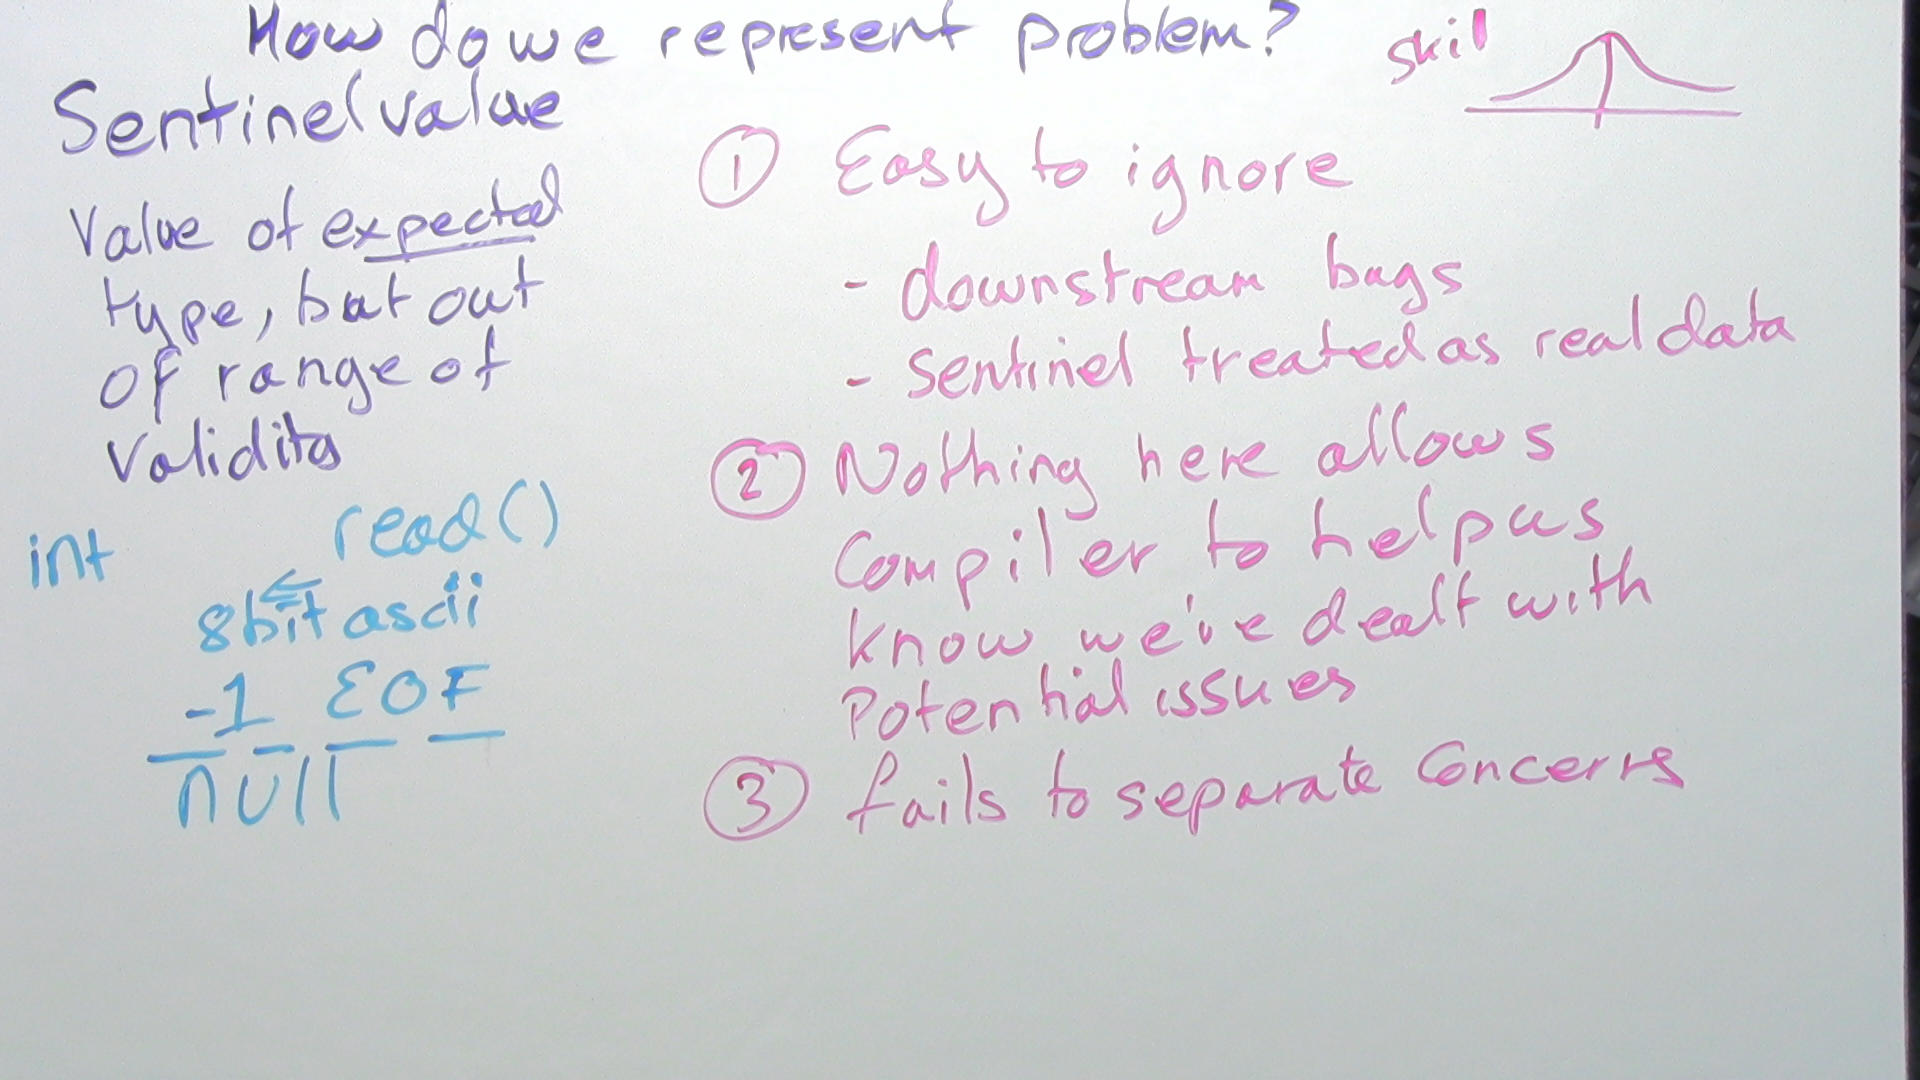 How do we represent problem?
Sentinel value
Value of expected
type, but out
of range of
validity
int read()
8bit ascii
-1 EOF
null
skill
① Easy to ignore
- downstream bugs
- sentinel treated as real data
② Nothing here allows
compiler to help us
know we've dealt with
potential issues
③ fails to separate concerns